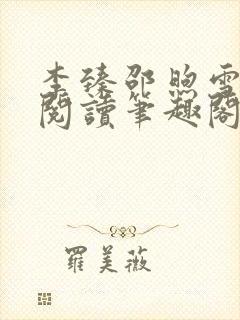 李臻邵煦雪
閱讀筆趣閣
羅美薇